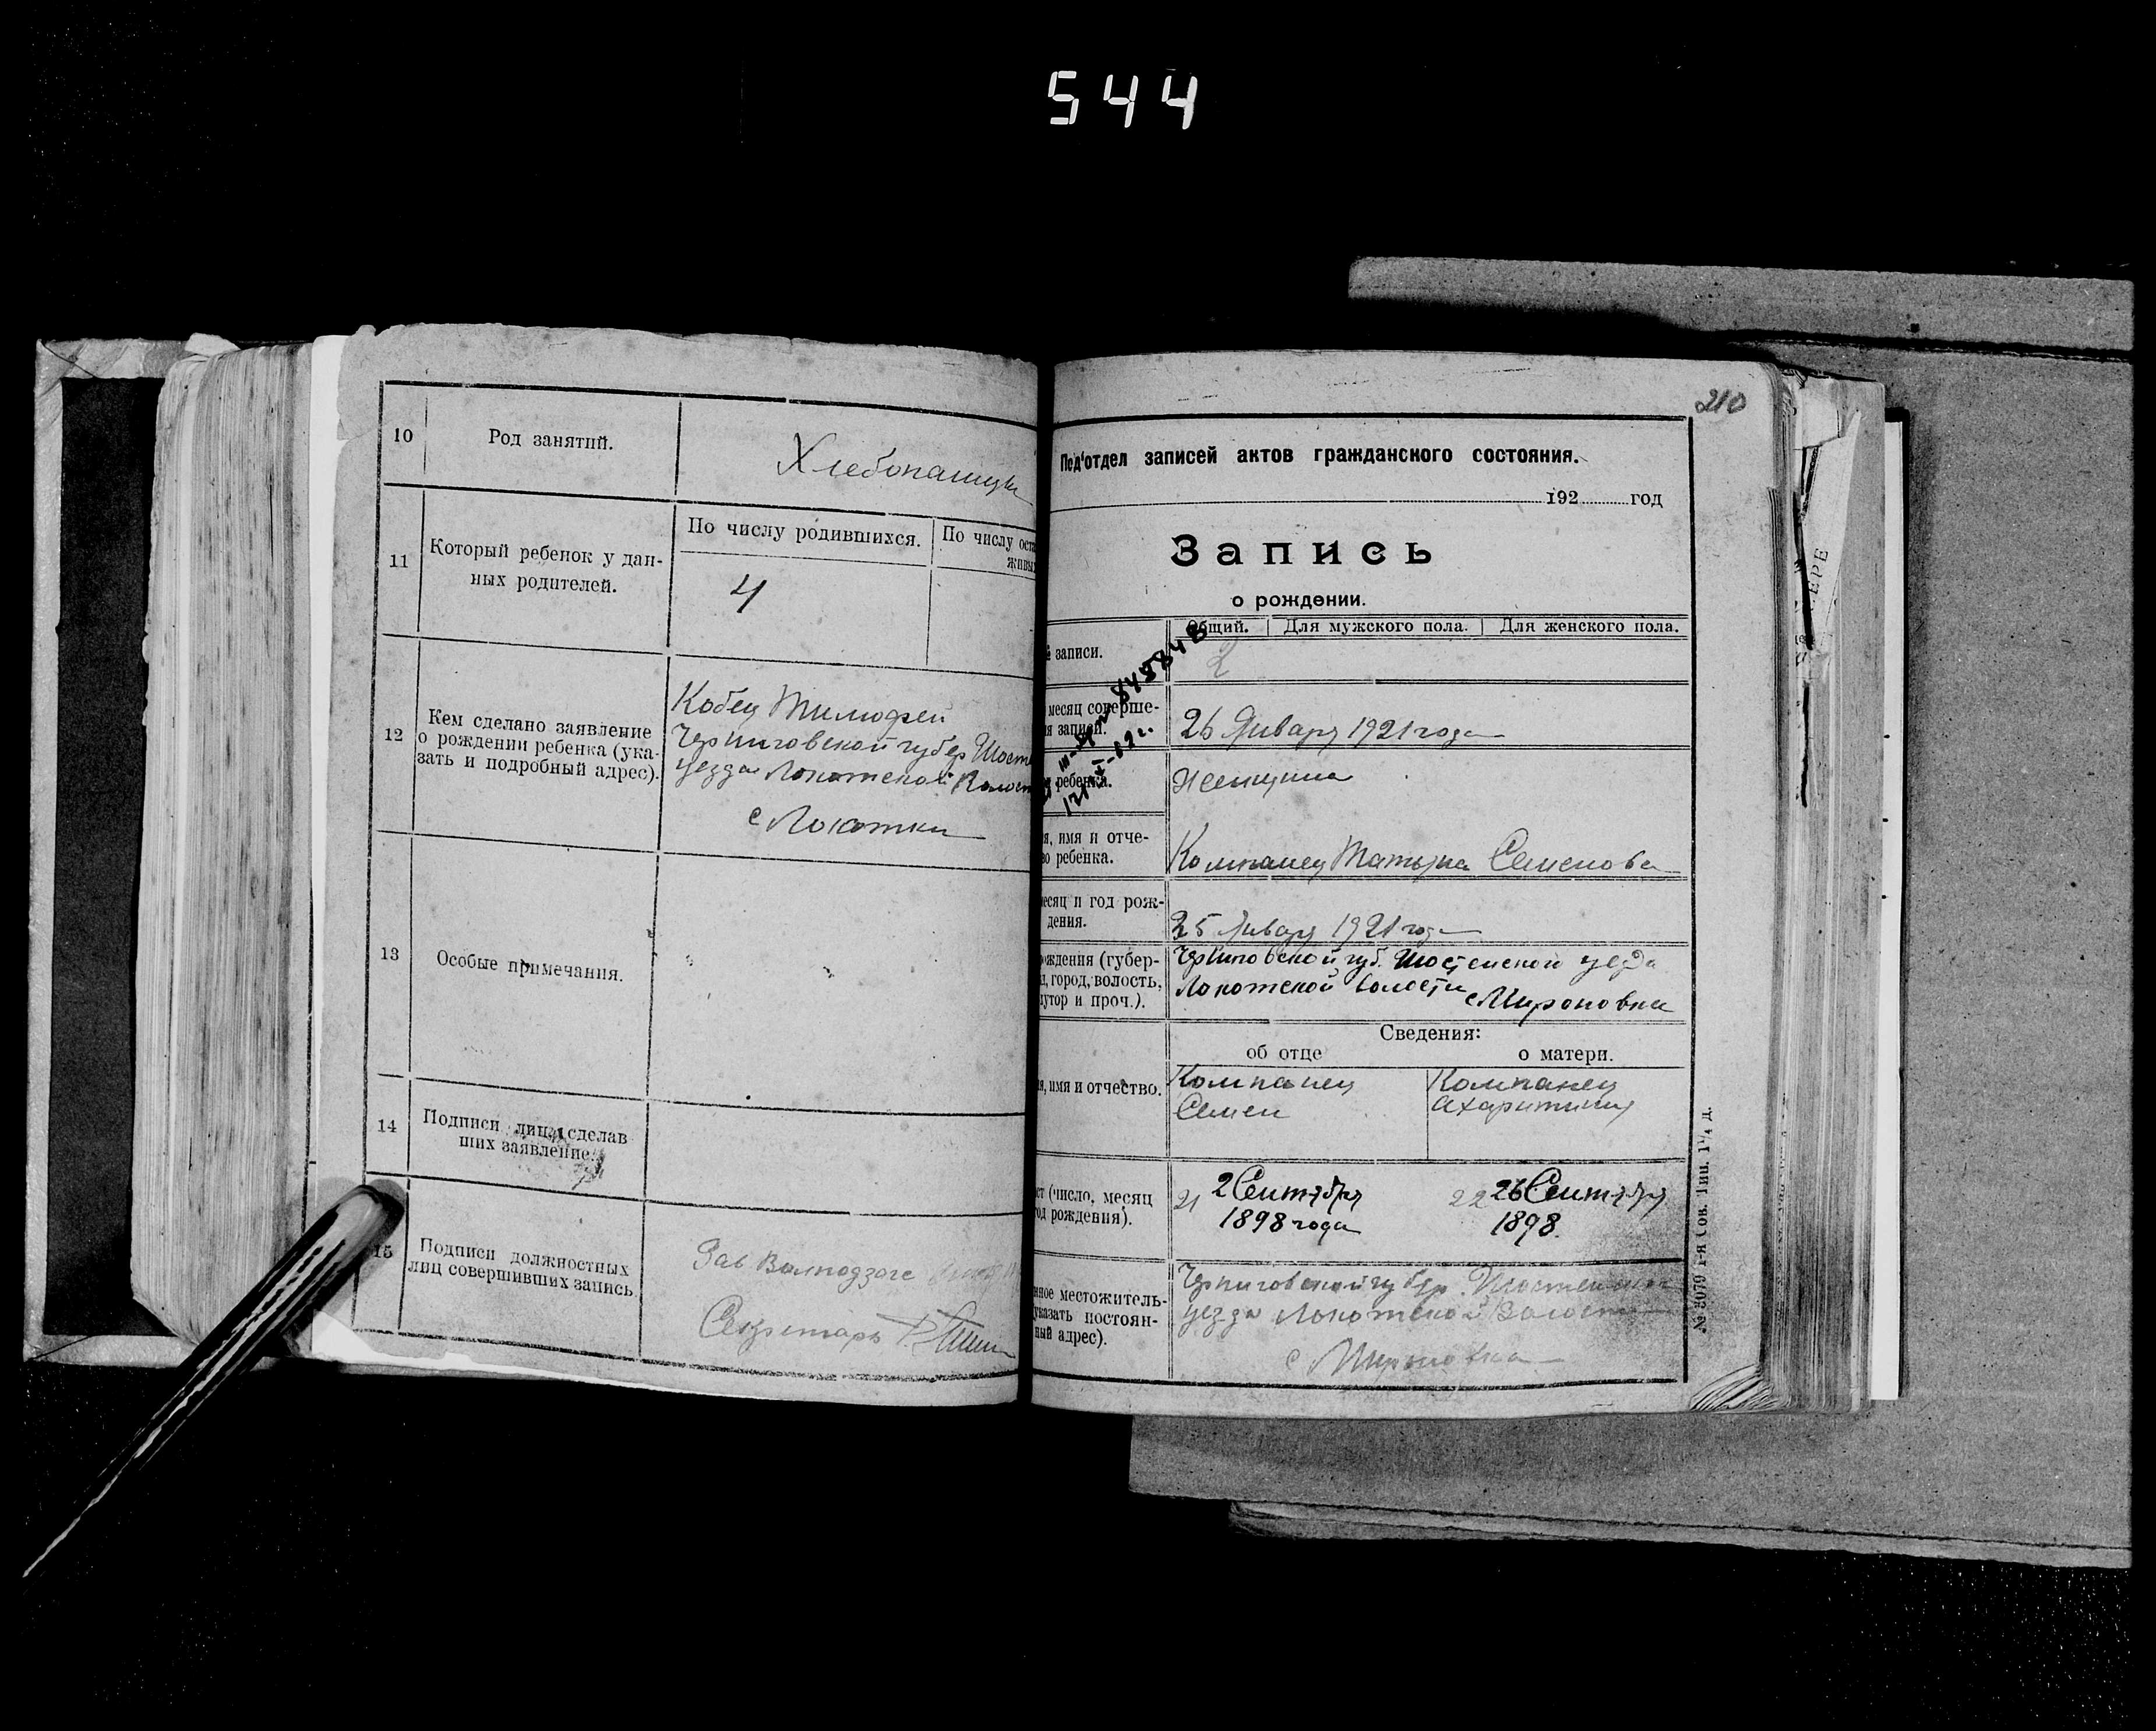 544
10 Род занятий. Хлебопашцы
11 Который ребенок у дан-
ных родителей.
По числу родившихся. По числу оста
живых
4
12 Кем сделано заявление
о рождении ребенка (ука-
зать и подробный адрес).
Кобец Тимофей
Черниговской губер Шост
уезда Локотской Волост
с Локотки
13 Особые примечания.
14 Подписи лиц, сделав
ших заявление.
15 Подписи должностных
лиц совершивших запись
Зав Волподзагс
Секретарь
210
Под'отдел записей актов гражданского состояния.
192 год
Запись
о рождении.
Общий. Для мужского пола. Для женского пола.
№ записи. 2
месяц соверше-
ия записи.
26 Января 1921 года
ребенка. Женщина
я, имя и отче-
во ребенка.
Компанец Татьяна Семенова
месяц и год рож-
дения.
25 Января 1921 года
рождения (губер-
, город, волость,
хутор и проч.).
Черниговской губ. Шостенской уезда
Локотской волости с Мироновка
Сведения:
об отце о матери.
я, имя и отчество.
Компанец
Семен
Компанец
ст (число, месяц
од рождения).
21 2 Сентября
1898 года
22 26 Сентября
1898.
нное местожитель-
указать постоян-
ный адрес).
Черниговской губер. Шостенской
уезда Локотской Волости
с Мироновка
№ 3079 1-я Сов. Тип. 1¼ д.